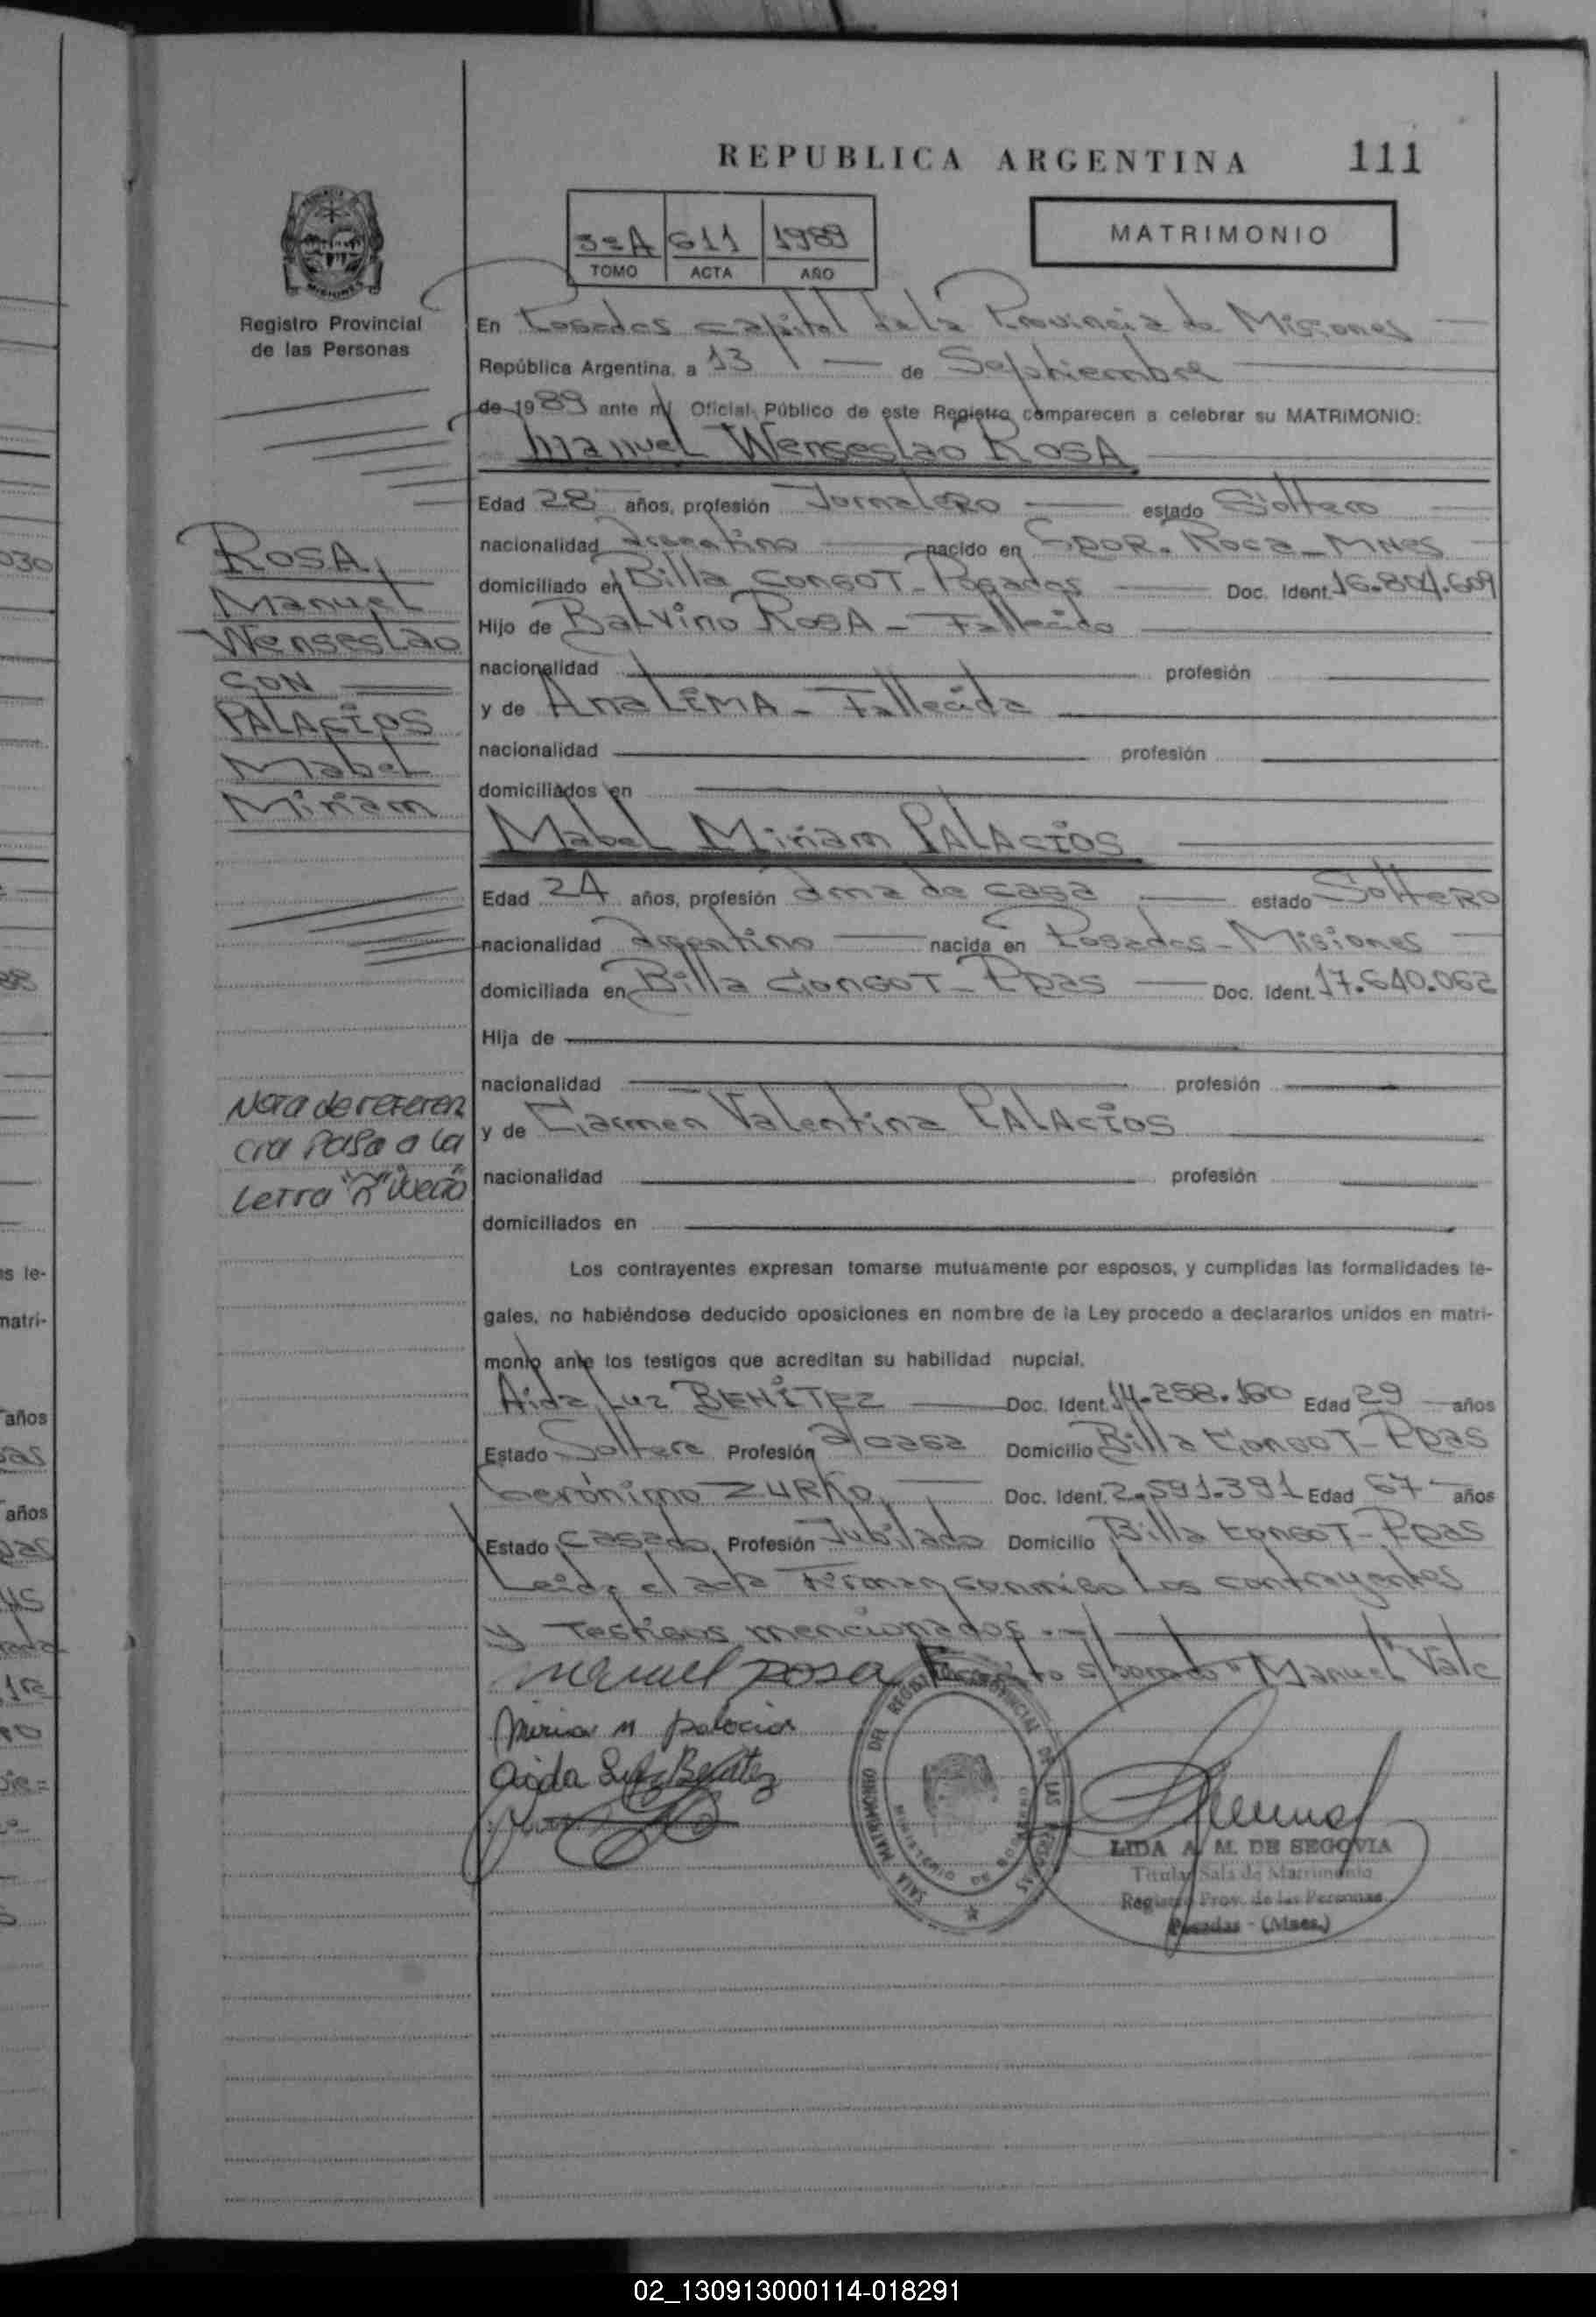 REPUBLICA ARGENTINA 111
3=A 611 1989
TOMO ACTA AÑO
MATRIMONIO
Registro Provincial
de las Personas
En Posadas capital de la Provincia de Misiones
República Argentina, a 13 de Septiembre
de 1989 ante mí Oficial Público de este Registro comparecen a celebrar su MATRIMONIO:
Manuel Wenseslao ROSA
Edad 28 años, profesión Jornalero estado Soltero
nacionalidad argentino nacido en GDOR. Roca - Mnes
domiciliado en Billa Longot - Posadas Doc. Ident. 16.804.609
Hijo de Balvino ROSA - Fallecido
nacionalidad profesión
y de Ana LIMA - Fallecida
nacionalidad profesión
domiciliados en
Mabel Miriam PALACIOS
Edad 24 años, profesión ama de casa estado Soltero
nacionalidad argentino nacida en Posadas - Misiones
domiciliada en Billa Longot - Pdas Doc. Ident. 17.640.062
Hija de
nacionalidad profesión
y de Carmen Valentina PALACIOS
nacionalidad profesión
domiciliados en
Los contrayentes expresan tomarse mutuamente por esposos, y cumplidas las formalidades le-
gales, no habiéndose deducido oposiciones en nombre de la Ley procedo a declararlos unidos en matri-
monio ante los testigos que acreditan su habilidad nupcial.
Aida Luz BENITEZ Doc. Ident. 14.258.160 Edad 29 años
Estado Soltera Profesión a/casa Domicilio Billa Longot - Pdas
Gerónimo ZURKO Doc. Ident. 2.591.391 Edad 67 años
Estado Casado Profesión Jubilado Domicilio Billa Longot - Pdas
Leida el acta Firman conmigo los contrayentes
y Testigos mencionados.-
s/borrado "Manuel" Vale
manuel rosa
Miriam M palacios
Aida Luz Benitez
SALA MATRIMONIO DEL REGISTRO PROVINCIAL DE LAS PERSONAS
MINISTERIO DE GOBIERNO
LIDA A. M. DE SEGOVIA
Titular Sala de Matrimonio
Registro Prov. de las Personas
Posadas - (Mnes.)
ROSA,
Manuel
Wenseslao
CON
PALACIOS
Mabel
Miriam
Nota de referen
cia Pasa a la
Letra "A"
030
s le-
matri-
años
años
02_130913000114-018291